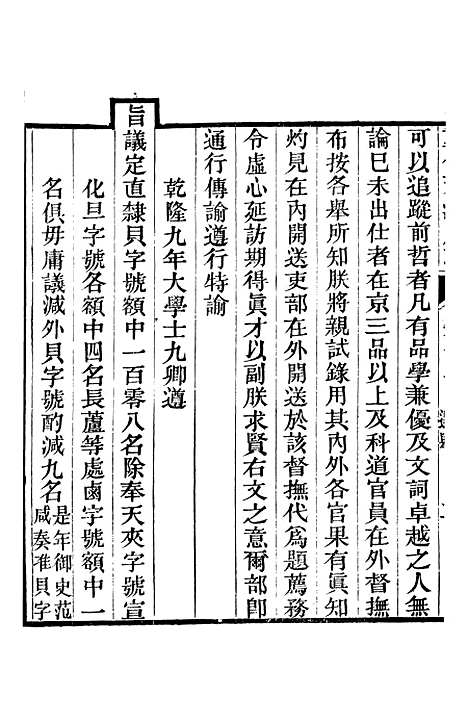 可以追蹤前哲者凡有品學兼優及文詞卓越之人無
論已未出仕者在京三品以上及科道官員在外督撫
布按各舉所知朕將親試錄用其內外各官果有眞知
灼見在內開送吏部在外開送於該督撫代爲題薦務
令虛心延訪期得眞才以副朕求賢右文之意爾部卽
通行傳諭遵行特諭
乾隆九年大學士九卿遵
旨議定直隸貝字號額中一百零八名除奉天夾字號宣
化旦字號各額中四名長蘆等處鹵字號額中一
名俱毋庸議減外貝字號酌減九名是年御史范
咸奏准貝字